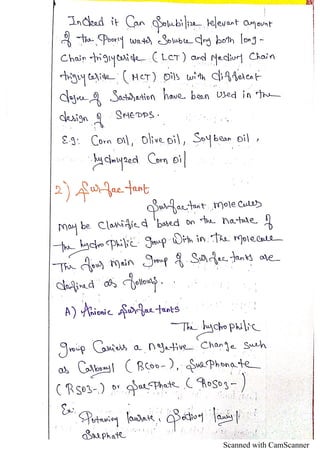 Indeed it Can Solubilize relevant amount
of the Poorly water Soluble drug both long-
Chain triglyceride (LCT) and Medium Chain
triglyceride (MCT) Oils with different
degree of Saturation have been used in the
design of SMEDDS.
Eg: Corn oil, Olive oil, Soybean oil,
hydrolyzed Corn oil
2) Surfactant
Surfactant molecules
may be Classified based on the nature of
the hydrophilic group within the molecule
The four main group of Surfactants are
defined as follows.
A) Anionic Surfactants
The hydrophilic
group Carries a negative Charge such
as Carboxyl (RCOO-), Sulphonate
(RSO3-) or Sulphate (ROSO3-)
Ex:
Potassium laurate, Sodium lauryl
Sulphate
Scanned with CamScanner